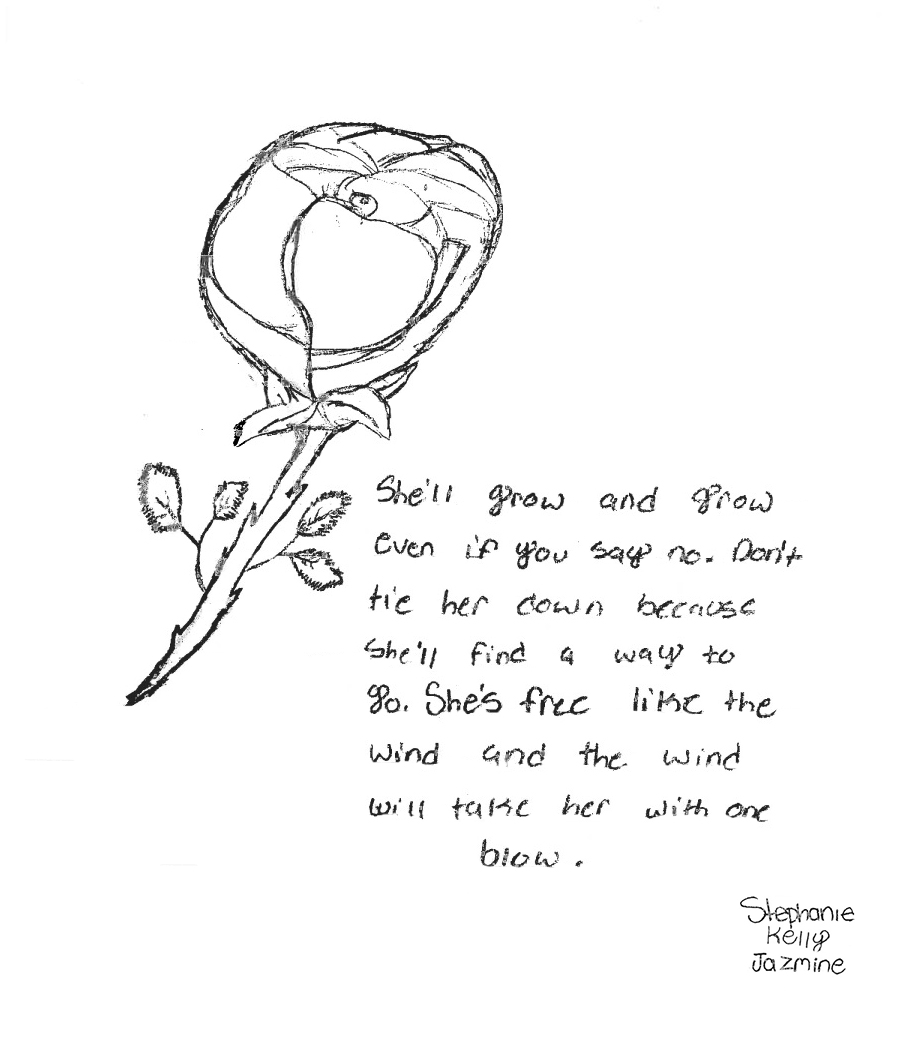 She'll grow and grow
even if you say no. Don't
tie her down because
she'll find a way to
go. She's free like the
wind and the wind
will take her with one
blow.
Stephanie
Kelly
Jazmine